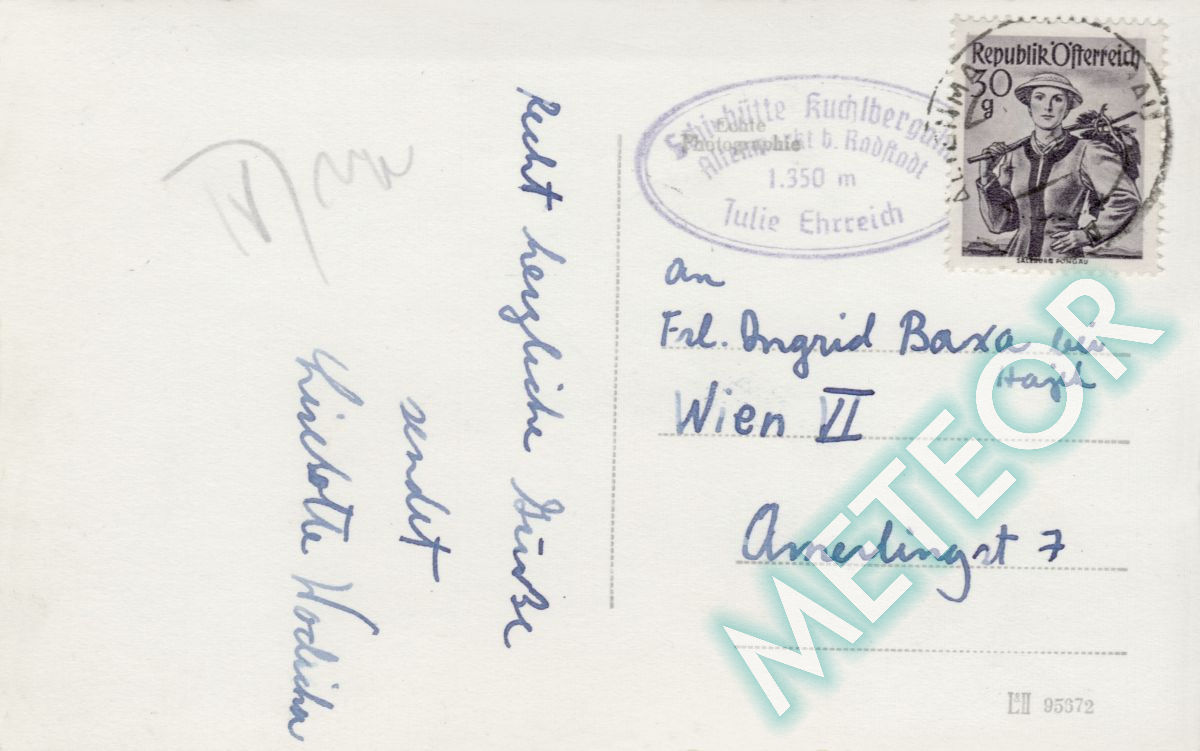 Recht herzliche Grüße
sendet
Liselotte Wodicka
Echte
Photographie
Schihütte Kuchlbergalm
Altenmarkt b. Radstadt
1.350 m
Julie Ehrreich
Republik Österreich
30
g
SALZBURG PONGAU
an
Frl. Ingrid Baxa bei
Wien VI
Amerlingst 7
L&H 95372
METEOR